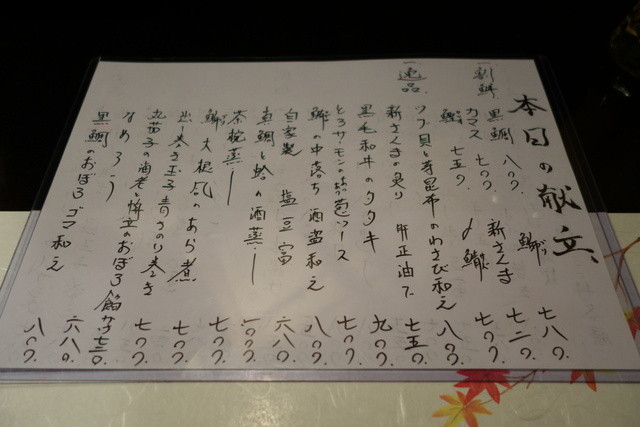 本日の献立
割鮮
黒鯛 八〇〇.
鰤 七八〇.
カマス 七〇〇.
新さんま 七二〇.
鰹 七五〇.
〆鯵 七〇〇.
一逸品
ツブ貝と芽昆布のわさび和え 八〇〇.
新さんまの炙り 肝正油で 七五〇.
黒毛和牛のタタキ 九〇〇.
とろサーモンの葱ソース 七〇〇.
鰤の中落ち 酒盗和え 八〇〇.
自家製 塩豆富 六八〇.
真鯛と蛤の酒蒸し 一〇〇〇.
茶碗蒸し 七〇〇.
鰤 大根 のあら煮 七〇〇.
出し巻き玉子 青のり巻き 七〇〇.
丸茄子の海老 のおぼろ餡かけ 七三〇.
なめろう 六八〇.
黒鯛のおぼろゴマ和え 八〇〇.